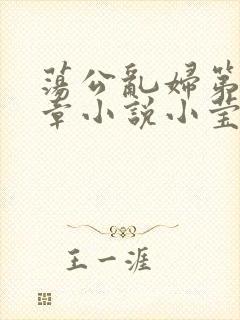 蕩公亂婦第
章小説小莹
王一涯